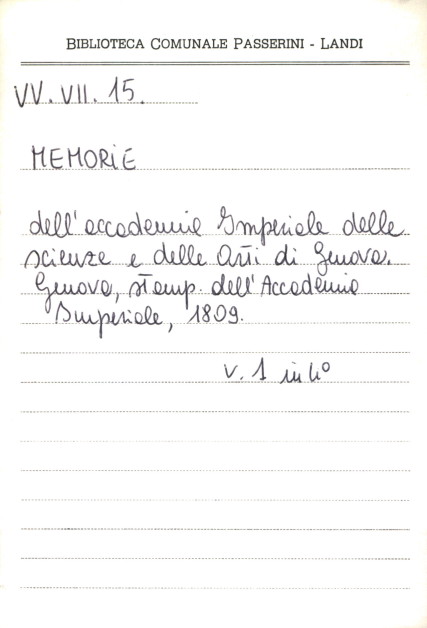 BIBLIOTECA COMUNALE PASSERINI - LANDI
VV. VII. 15.
MEMORIE
dell'accademia Imperiale delle
scienze e delle Arti di Genova.
Genova, stamp. dell'Accademia
Imperiale, 1809.
v. 1 in 4º